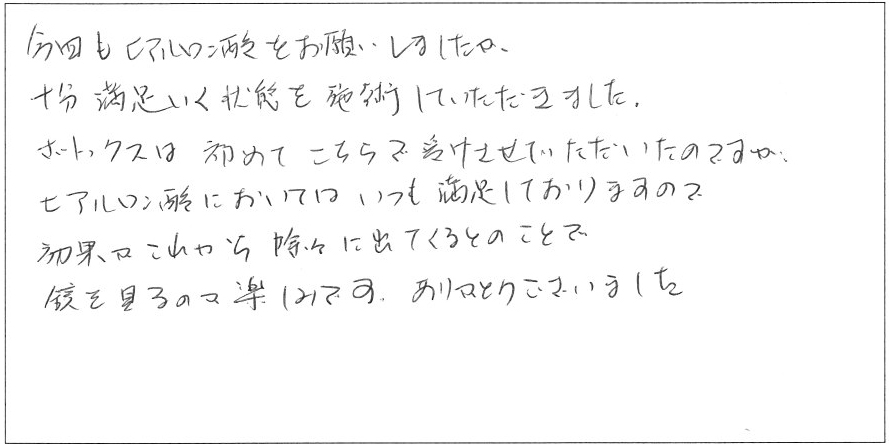 今回もヒアルロン酸をお願いしましたが、
十分満足いく状態を施術していただきました。
ボトックスは初めてこちらで受けさせていただいたのですが、
ヒアルロン酸においてはいつも満足しておりますので
効果がこれから除々に出てくるとのことで
鏡を見るのが楽しみです。ありがとうございました